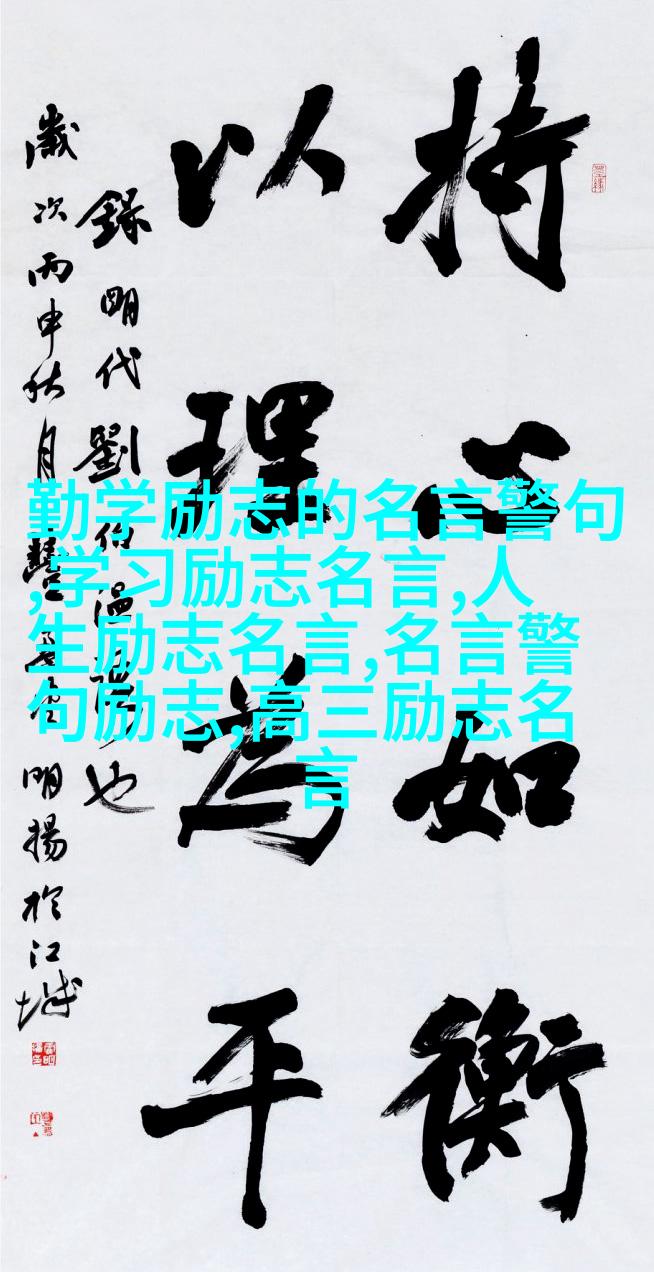 持心如衡
以理為平
錄明代劉伯温語也
歲次丙申秋月
明揚於江城
勤学励志的名言警句
,学习励志名言,人
生励志名言,名言警
句励志,高三励志名
言